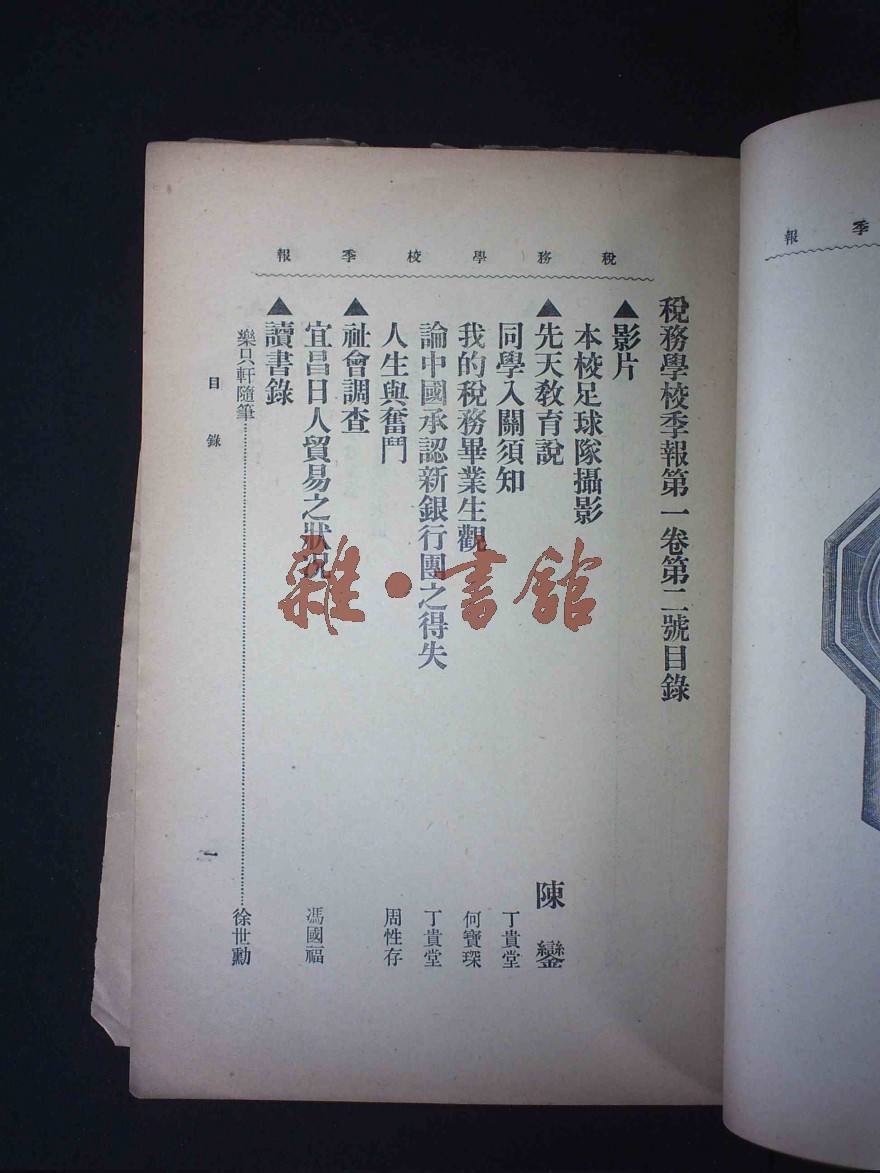 稅務學校季報
稅務學校季報第一卷第二號目錄
▲影片
本校足球隊攝影
▲先天教育說 陳鑾
同學入關須知 丁貴堂
我的稅務畢業生觀 何寶琛
論中國承認新銀行團之得失 丁貴堂
人生與奮鬥 周性存
▲社會調查
宜昌日人貿易之狀況 馮國福
▲讀書錄
樂只軒隨筆 徐世勳
目錄
一
季報
雜·書館